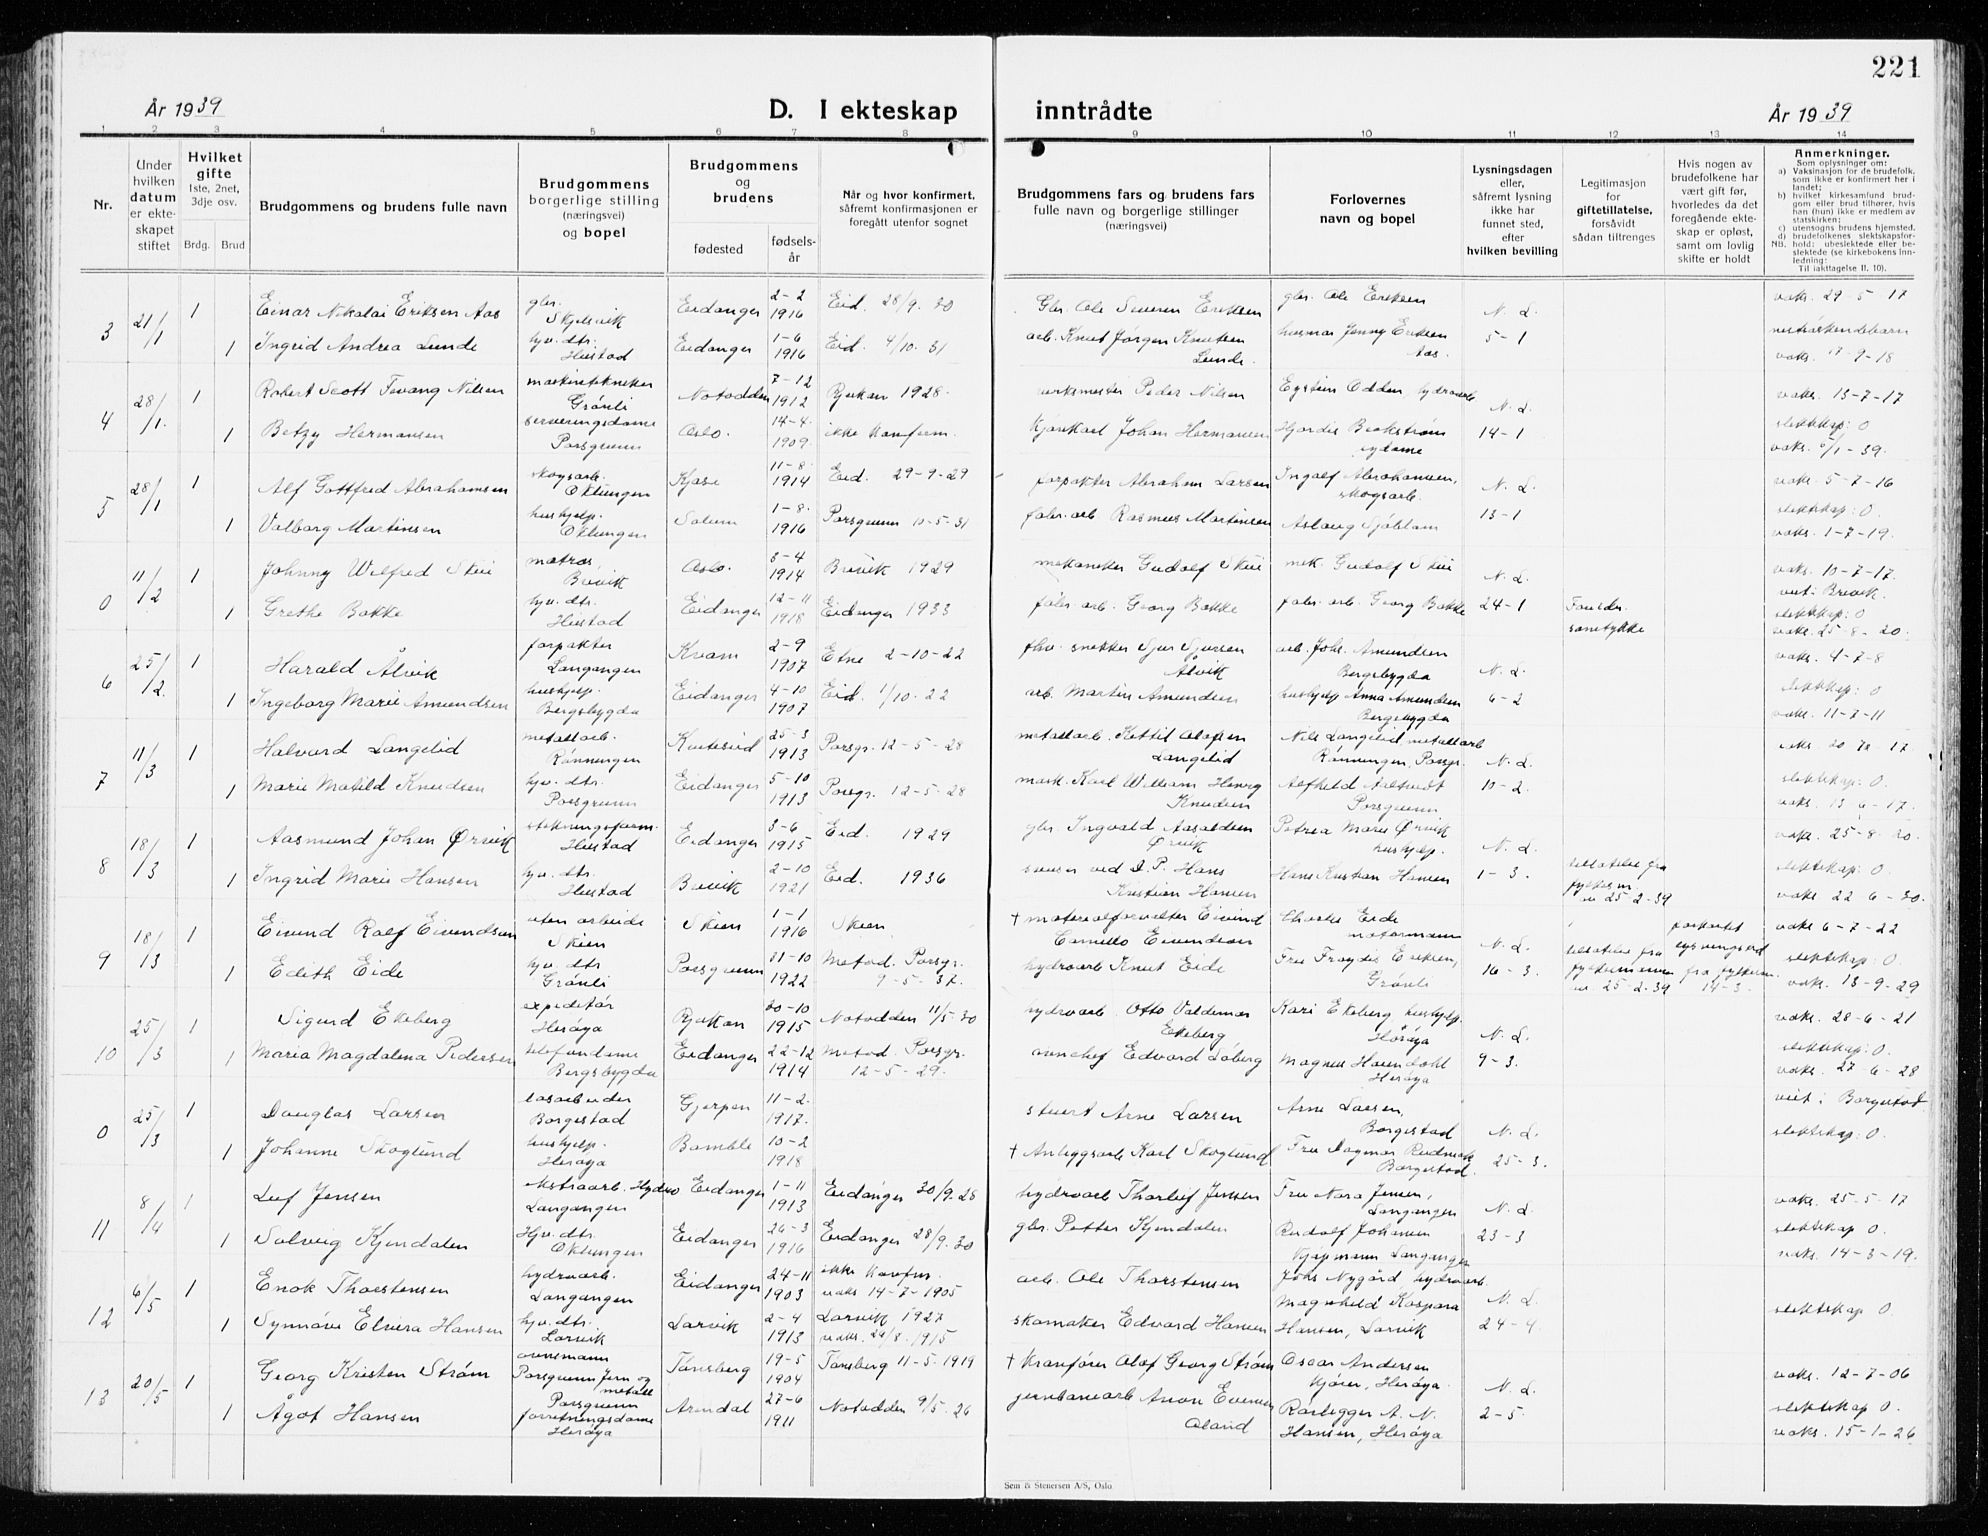 221
År 1939
D. I ekteskap inntrådte
År 1939
1 2 3 4 5 6 7 8 9 10 11 12 13 14
Nr.
Under hvilken datum er ekteskapet stiftet
Hvilket gifte 1ste, 2net, 3dje osv.
Brdg. Brud
Brudgommens og brudens fulle navn
Brudgommens borgerlige stilling (næringsvei) og bopel
Brudgommens og brudens
fødested
fødselsår
Når og hvor konfirmert, såfremt konfirmasjonen er foregått utenfor sognet
Brudgommens fars og brudens fars fulle navn og borgerlige stillinger (næringsvei)
Forlovernes navn og bopel
Lysningsdagen eller, såfremt lysning ikke har funnet sted, efter hvilken bevilling
Legitimasjon for giftetillatelse, forsåvidt sådan tiltrenges
Hvis nogen av brudefolkene har vært gift før, hvorledes da det foregående ekteskap er opløst, samt om lovlig skifte er holdt
Anmerkninger.
Som oplysninger om:
a) Vaksinasjon for de brudefolk, som ikke er konfirmert her i landet;
b) hvilket kirkesamfund brudgom eller brud tilhører, hvis han (hun) ikke er medlem av statskirken;
c) utensogns brudens hjemsted.
d) brudefolkenes slektskapsforhold: ubeslektede eller beslektede (se kirkebokens innledning:
NB.
Til iakttagelse II. 10).
3 21/1 1 Einar Nikolai Eriksen Aas gbr. Skjelsvik Eidanger 2-2 1916 Eid. 28/9. 30 Gbr. Ole Severin Eriksen gbr. Ole Eriksen N. L. vaks. 29-5-17
1 Ingrid Andrea Lunde hjv. dtr. Heistad Eidanger 1-6 1916 Eid. 4/10. 31 arb. Knut Jørgen Knutsen Lunde husmor Jenny Eriksen Aas 5-1 vaks. 17-9-18
4 28/1. 1 Robert Scott Tevang Nilsen maskintekniker Grønli Notodden 7-12 1912 Rjukan 1928. verksmester Peder Nilsen Eystein Odden, hydroarb N. L. vaks. 13-7-17
1 Betzy Hermansen serveringsdame Porsgrunn Oslo. 14-4. 1909. ikke konferm. Kjørekarl Johan Hermansen Hjørdis Beckstrøm sydame 14-1 slektskp: 0 vaks. 5/1-39.
5 28/1 1 Alf Gottfred Abrahamsen skogsarb. Oklungen Kjose 11-8. 1914 Eid. 29-9-29 forpakter Abraham Larsen Ingolf Abrahamsen, skogsarb. N. L. vaks. 5-7-16
1 Valborg Martinsen hushjelp. Oklungen Solum 1-8- 1916 Porsgrunn 10-5-31 fabr. arb. Rasmus Martinsen Aslaug Sjøblom 13-1 slektskap: 0. vaks. 1-7-19.
0 11/2 1 Johnny Wilfred Skui matros, Brevik Oslo. 3-4 1914 Brevik 1929 mekaniker Gudolf Skui mek. Gudolf Skui N. L. vaks. 10-7-17. viet i Brevik.
1 Grethe Bakke hjv. dtr. Heistad Eidanger 12-11 1918 Eidanger 1933 fabr. arb. Georg Bakke fabr. arb. Georg Bakke 24-1 slektskap: 0 vaks. 25-8-20.
6 25/2. 1 Harald Ålvik forpakter Langangen Kvam 2-9 1907 Etne 2-10-22 fhv. snekker Sjur Sjursen Ålvik arb. Johs. Amundsen Bergsbygda N. L. vaks. 4-7-8
1 Ingeborg Marie Amundsen hushjelp. Bergsbygda Eidanger 4-10 1907 Eid. 1/10. 22 arb. Martin Amundsen hushjelp Anna Amundsen Bergsbygda 6-2 slektskap: 0 vaks. 11-7-11
7 11/3 1 Halvard Langelid metallarb. Rønningen 25-3 1913 Porsgr. 12-5-28 metallarb. Kettil Olafsen Langelid Nils Langelid, metallarb Rønningen, Porsgr. N. L.
1 Marie Matild Knudsen hjv. dtr. Porsgrunn Eidanger 5-10 1913 Porsgr. 12-5-28 mask. Karl William Henry Knudsen Porsgrunn 10-2. slektskap: 0. vaks. 13-6-17.
8 18/3 1 Aasmund Johan Ørvik Heistad Eidanger 3-6 1915 Eid. 1929 gbr. Ingvald Aasoldsen Ørvik Petrea Marie Ørvik hushjelp. N. L. vaks. 25-8-20.
1 Ingrid Marie Hansen hjv. dtr. Heistad Brevik 2-10 1921 Eid. 1936 Hans Kristian Hansen Hans Kristian Hansen 1-3. tillatelse fra fylkesm. av 25-2-39 slektskap: 0 vaks 22-6-30.
9 18/3 1 Eivind Rolf Eivendsen uten arbeide Skien Skien 1-1 1916 Skien + materialforvalter Eivind Camillo Eivendsen Charles Eide motormann N. L. forkortet lysningstid fra fylkesm. 14-3. vaks 6-7-22
1 Edith Eide hjv. dtr Grønli Porsgrunn 31-10 1922 Metod. Porsgr. 9-5-37. hydroarb Knut Eide Fru Frøydis Eriksen, Grønli 16-3. tillatelse fra fylkesmannen av 25-2-39 slektskap: 0. vaks. 13-9-29
10 25/3 1 Sigurd Ekeberg expeditør Herøya Rjukan 30-10 1915 Notodden 11/5.30 hydroarb. Otto Valdemar Ekeberg Kari Ekeberg hushjelp. Herøya N. L. vaks. 28-6-21
1 Maria Magdalena Pedersen telefondame Bergsbygda Eidanger 22-12 1914 Metod. Porsgr. 12-5-29. Edvard Søberg Magnus Herøya 9-3. slektskap: 0. vaks. 27-6-28
0 25/3 1 Douglas Larsen Borgestad Gjerpen 11-2- 1917. stuert Arne Larsen Arne Larsen, Borgestad N. L. viet i Borgestad.
1 Johanne Skoglund hushjelp. Herøya Bamble 10-2 1918 + Anleggsarb Karl Skoglund Fru Dagmar Rudmark Borgestad. 25-3. slektskap: 0.
11 8/4 1 Leif Jensen ekstraarb. Hydro Langangen Eidanger 1-11 1913 Eidanger 30/9.28 hydroarb Thorleif Jensen Fru Nora Jensen, Langangen N. L. vaks. 25-5-17
1 Solveig Kjendalen Hjv. dtr. Oklungen Eidanger 26-3 1916 Eidanger 28/9.30 gbr. Petter Kjendalen Rudolf Johansen Kjøpmann Langangen 23-3 slektskap 0. vaks. 14-3-19.
12 6/5 1 Enok Thorstensen hydroarb. Langangen Eidanger 24-11 1903 ikke konfir. vaks 14-7-1905 arb. Ole Thorstensen Johs Nygård hydroarb. N. L. slektskap 0.
1 Synnøve Elvira Hansen hjv. dtr. Larvik Larvik 2-4 1913 Larvik 1927 vaks. 24/8. 1915 skomaker Edvard Hansen Magnhild Kaspara Hansen, Larvik 24-4.
13 20/5 1 Georg Kristen Strøm ovnsmann Porsgrunn Jern og metall Porsgrunn Tønsberg 19-5 1904 Tønsberg 11-5-1919 + Kranfører Olaf Georg Strøm Oscar Andersen Kjører, Herøya N. L. vaks. 12-7-06
1 Ågot Hansen forretningsdame Herøya Arendal 27-6 1911 Notodden 9/5.26 jernbanearb Anon Evensen Øland Rørlegger A. N. Hansen, Herøya 2-5. slektskap 0. vaks. 15-1-26
Sem & Stenersen A/S, Oslo.